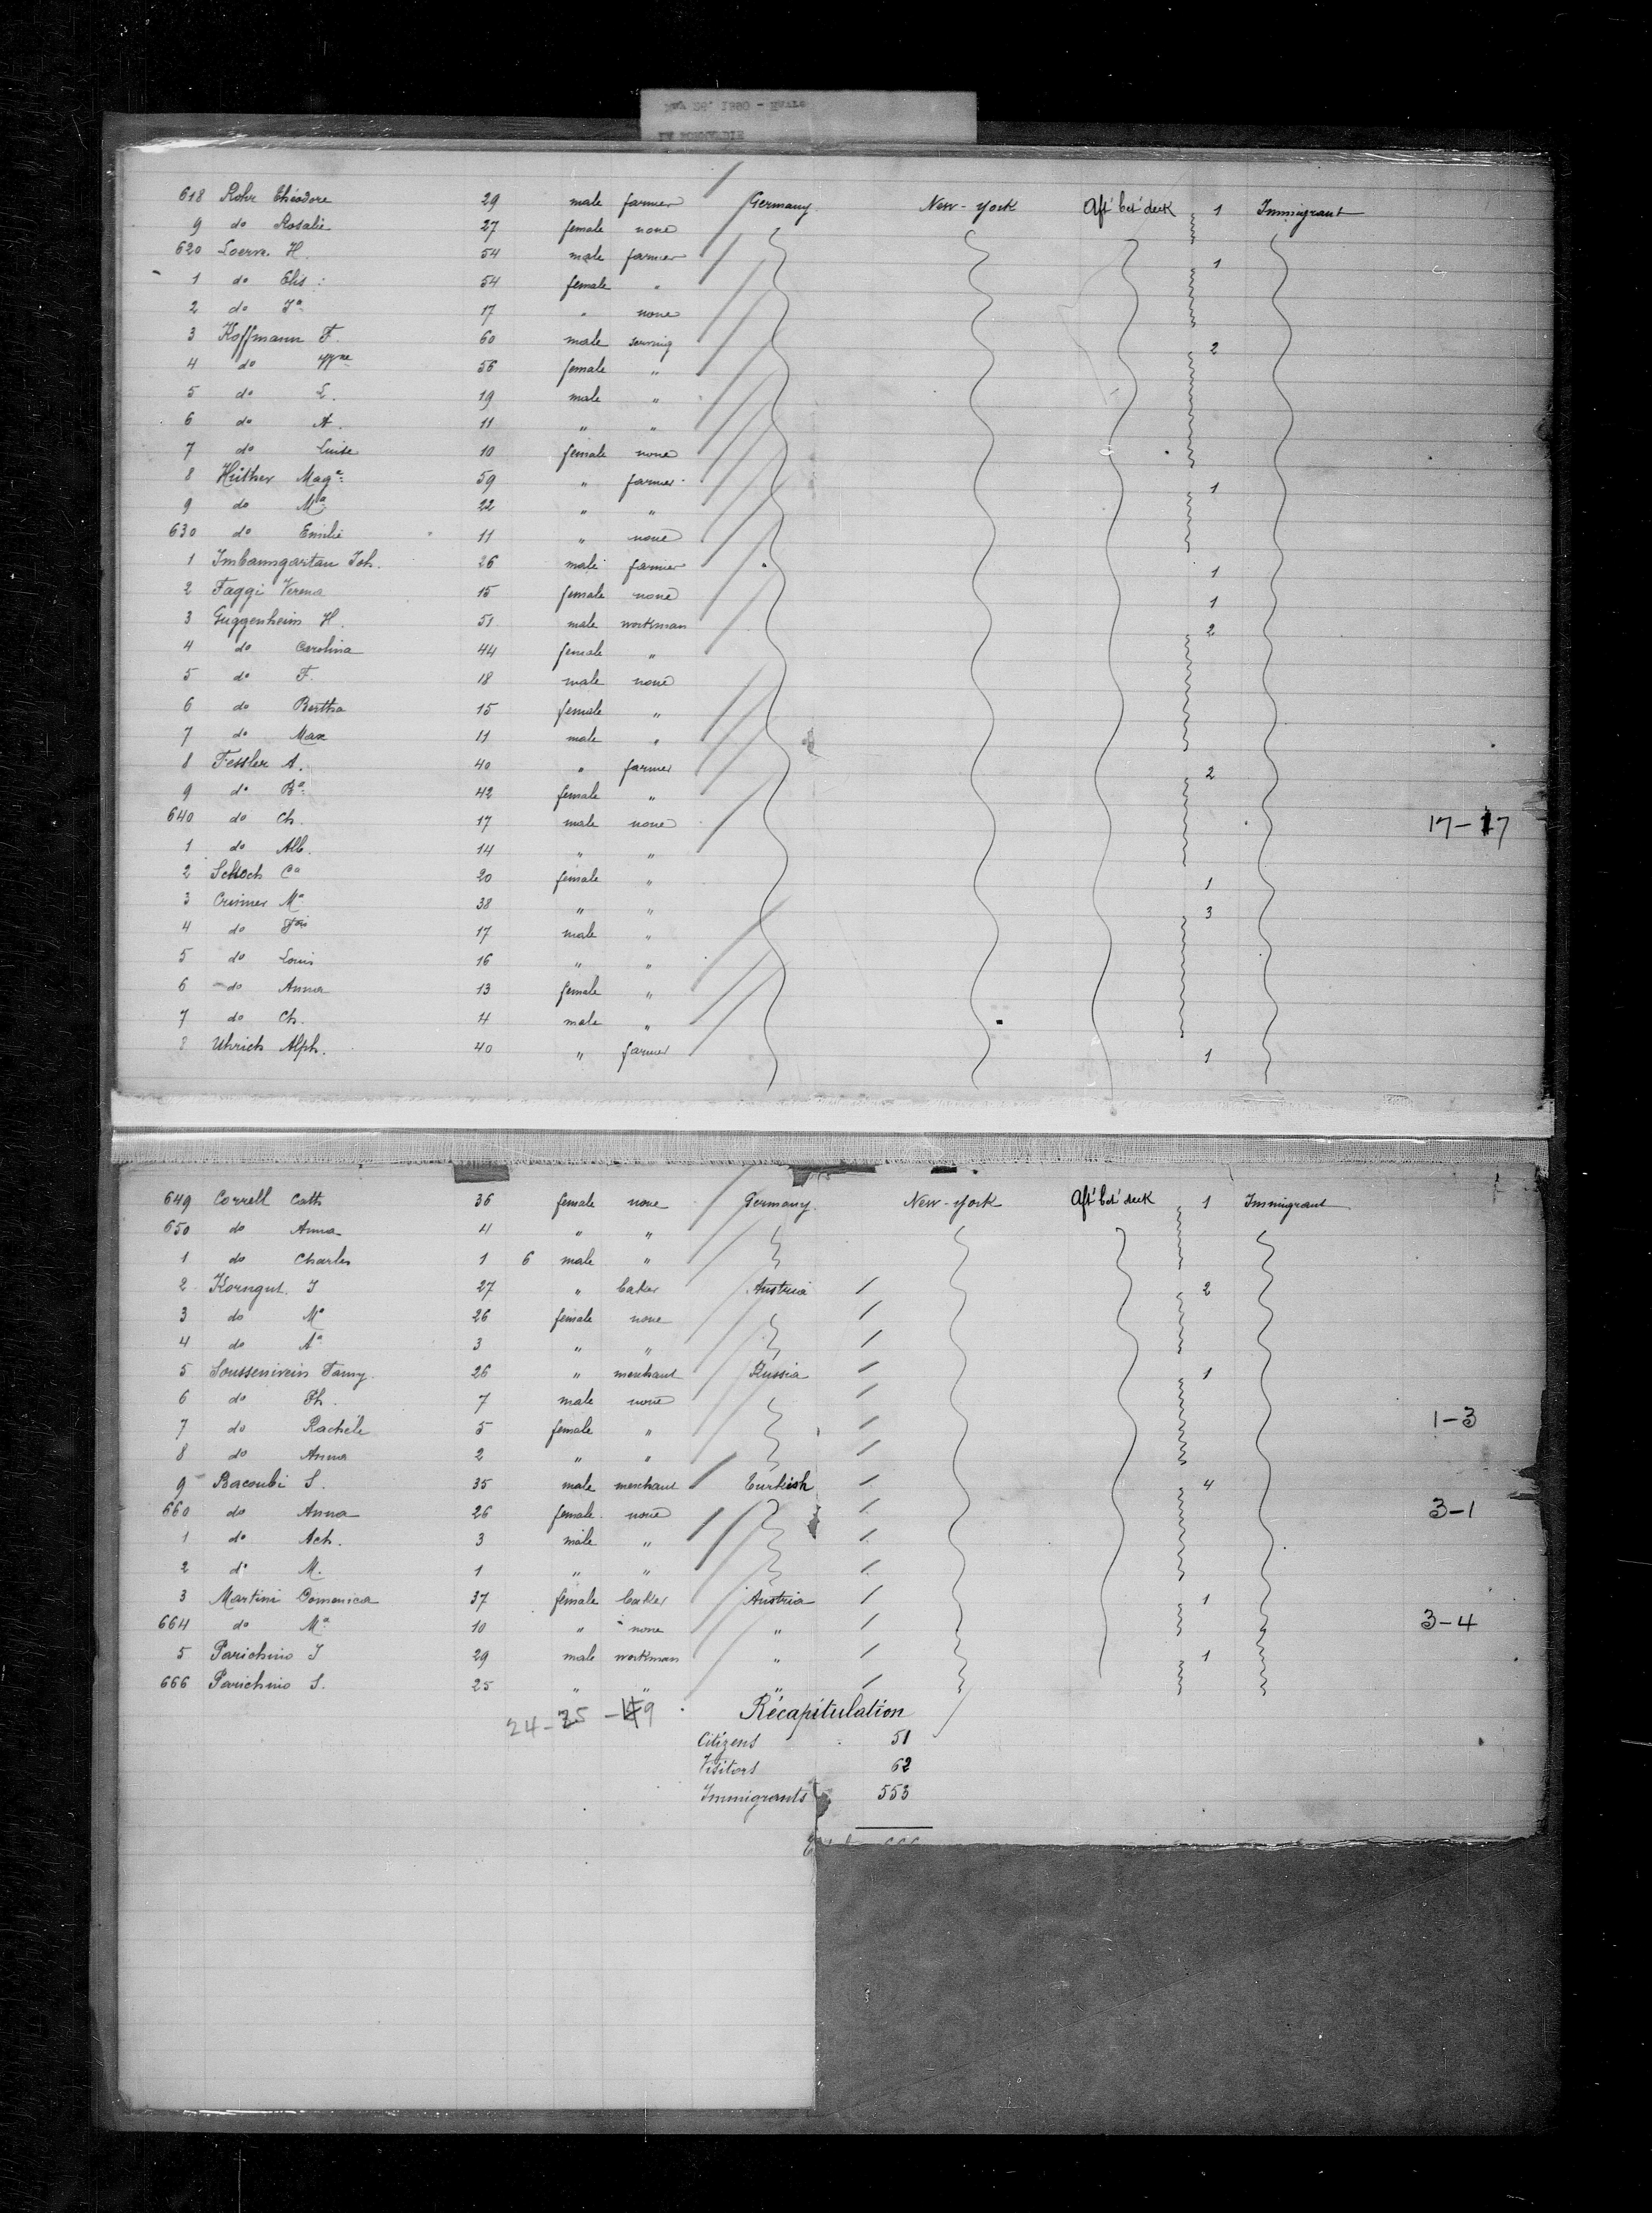 618 Rohr Théodore 29 male farmer Germany New-York Aft' bet' deck 1 Immigrant
9 do Rosalie 27 female none
620 H. 54 male farmer 1
1 do Elis: 54 female "
2 do Ja 17 " none
3 Koffmann F. 60 male 2
4 do 56 female "
5 do L. 19 male "
6 do A. 11 " "
7 do Luise 10 female none
8 Hüther Maga: 59 " farmer 1
9 do Ma 22 " "
630 do Emilie 11 " none
1 Imbaumgartan Joh. 26 male farmer 1
2 Faggi Verena 15 female none 1
3 Guggenheim H. 51 male workman 2
4 do Carolina 44 female "
5 do F. 18 male none
6 do Bertha 15 female "
7 do Max 11 male "
8 Fessler A. 40 " farmer 2
9 do Ba: 42 female "
640 do Ch. 17 male none 17-17
1 do Alb. 14 " "
2 Schoch Ca 20 female " 1
3 Ma 38 " " 3
4 do Fois 17 male "
5 do Louis 16 " "
6 do Anna 13 female "
7 do Ch. 4 male "
8 Uhrich Alph. 40 " farmer 1
649 Correll Cath 36 female none Germany. New-York Aft' bet' deck 1 Immigrant
650 do Anna 4 " "
1 do Charles 1 6 male "
2 Korngut. J 27 " baker Austria 2
3 do Ma 26 female none
4 do Aa 3 " "
5 Soussenivein Fanny. 26 " merchant Russia 1
6 do Ph. 7 male none
7 do Rachéle 5 female " 1-3
8 do Anna 2 " "
9 Bacoubi S. 35 male merchant Turkish 4
660 do Anna 26 female none 3-1
1 do Ach. 3 male "
2 do M. 1 " "
3 Martini Domenica 37 female baker Austria 1
664 do Ma 10 " none " 3-4
5 Parichino J 29 male workman " 1
666 Parichino S. 25 " " "
24-25-
Récapitulation
Citizens 51
Visitors 62
Immigrants 553